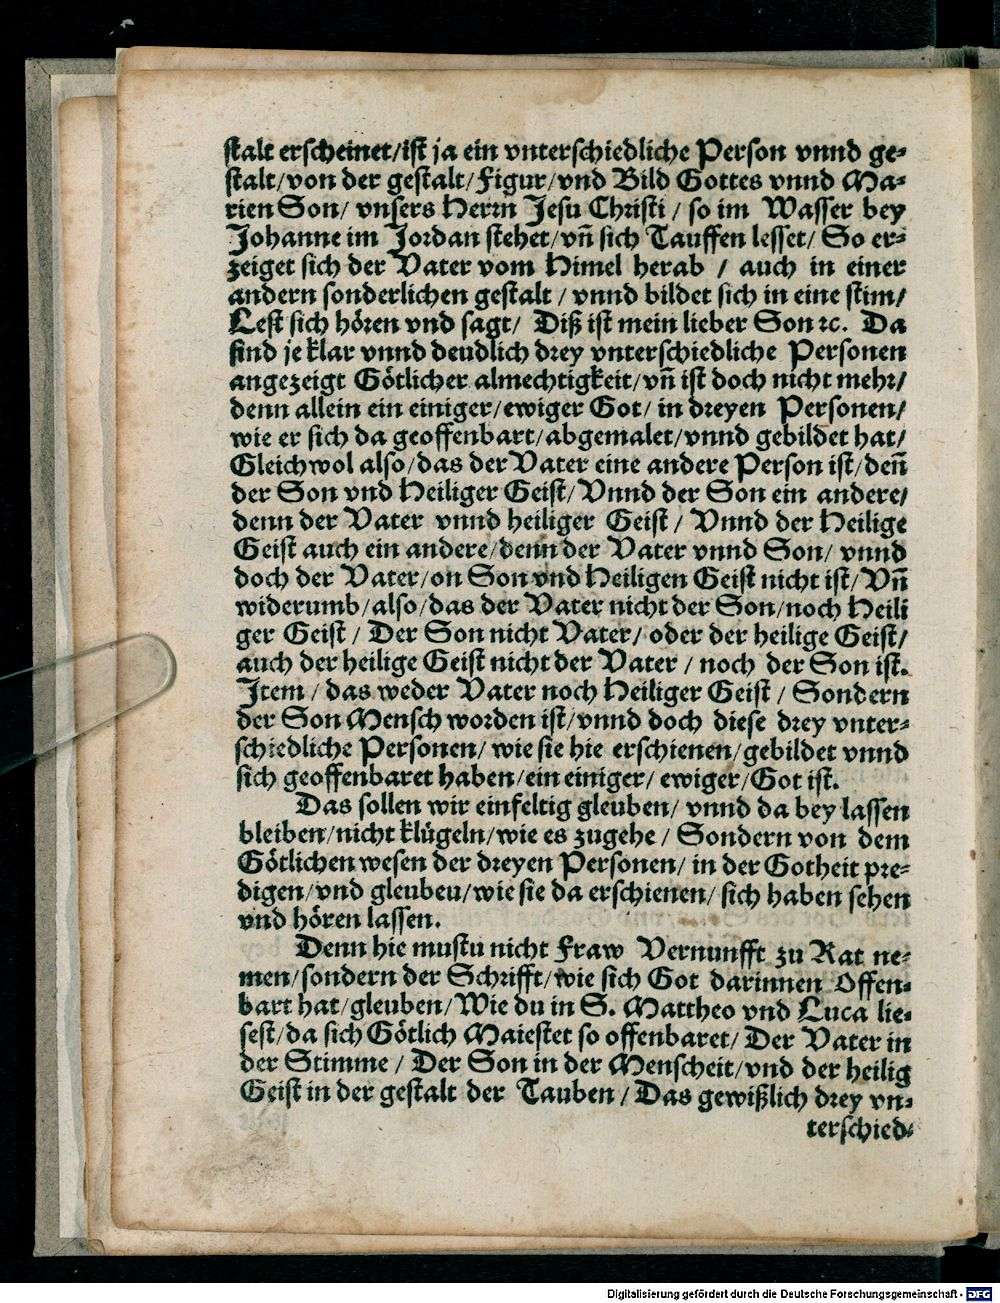 stalt erscheinet/ist ja ein vnterschiedliche Person vnnd ge⸗
stalt/von der gestalt/Figur/vnd Bild Gottes vnnd Ma⸗
rien Son/ vnsers Herrn Jesu Christi / so im Wasser bey
Johanne im Jordan stehet/vn̄ sich Tauffen lesset/ So er⸗
zeiget sich der Vater vom Himel herab / auch in einer
andern sonderlichen gestalt / vnnd bildet sich in eine stim/
Lest sich hören vnd sagt/ Diß ist mein lieber Son ꝛc. Da
sind je klar vnnd deudlich drey vnterschiedliche Personen
angezeigt Götlicher almechtigkeit/vn̄ ist doch nicht mehr/
denn allein ein einiger/ewiger Got/ in dreyen Personen/
wie er sich da geoffenbart/abgemalet/vnnd gebildet hat/
Gleichwol also/das der Vater eine andere Person ist/den̄
der Son vnd Heiliger Geist/ Vnnd der Son ein andere/
denn der Vater vnnd heiliger Geist / Vnnd der Heilige
Geist auch ein andere/denn der Vater vnnd Son/ vnnd
doch der Vater/on Son vnd Heiligen Geist nicht ist/ Vn̄
widerumb/also/das der Vater nicht der Son/noch Heili
ger Geist / Der Son nicht Vater/ oder der heilige Geist/
auch der heilige Geist nicht der Vater / noch der Son ist.
Item / das weder Vater noch Heiliger Geist / Sondern
der Son Mensch worden ist/vnnd doch diese drey vnter⸗
schiedliche Personen/ wie sie hie erschienen/gebildet vnnd
sich geoffenbaret haben/ein einiger/ ewiger/Got ist.
Das sollen wir einfeltig gleuben/ vnnd da bey lassen
bleiben/nicht klügeln/wie es zugehe / Sondern von dem
Götlichen wesen der dreyen Personen/ in der Gotheit pre⸗
digen/vnd gleubeu/wie sie da erschienen/ sich haben sehen
vnd hören lassen.
Denn hie mustu nicht Fraw Vernunfft zu Rat ne⸗
men/sondern der Schrifft/wie sich Got darinnen Offen⸗
bart hat/gleuben/Wie du in S. Mattheo vnd Luca lie⸗
sest/da sich Götlich Maiestet so offenbaret/ Der Vater in
der Stimme / Der Son in der Menscheit/vnd der heilig
Geist in der gestalt der Tauben / Das gewißlich drey vn⸗
terschied⸗
Digitalisierung gefördert durch die Deutsche Forschungsgemeinschaft - DFG